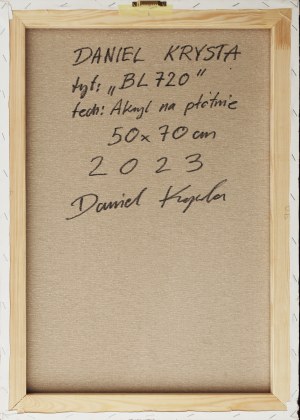 DANIEL KRYSTA
tyt: „BL 720"
tech: Akryl na płótnie
50x70cm
2023
Daniel Krysta